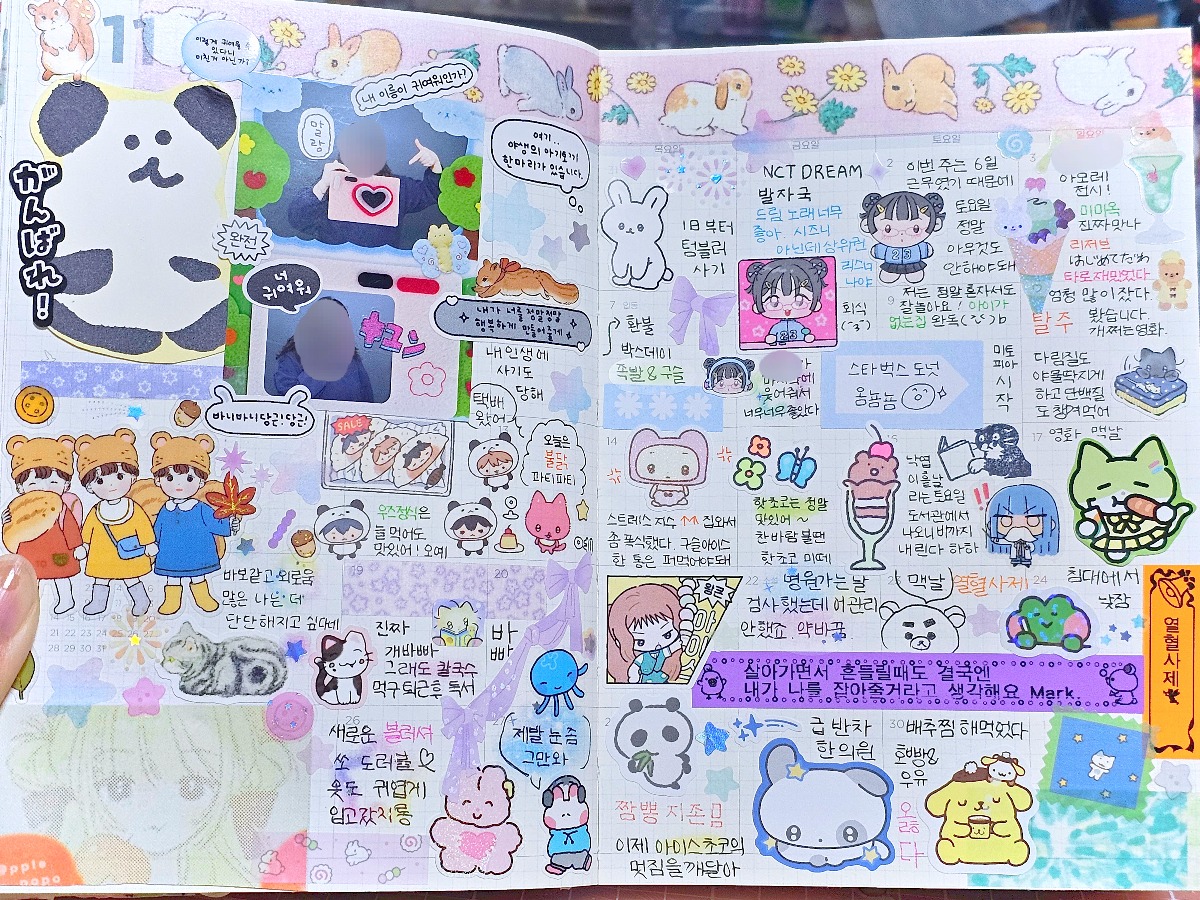 11
이렇게 귀여울 수
있다니
미친거 아닌가?
내 이름이 귀여워인가?
말랑
여기..
야생의 아기토끼
한마리가 있습니다.
がんばれ!
완전
너
귀여워
내가 너를 정말정말
행복하게 만들어줄게
내 인생에
사기도
당해
바니바니당근!당근!
SALE
택배
왔어
오늘은
불닭
파티파티
우주정식은
늘 먹어도
맛있어! 오예
바보같고 외로움
많은 나는 더
단단해지고 싶다네
14 15 16 17 18 19 20
21 22 23 24 25 26 27
28 29 30 31
19
20
진짜
개바빠
그래도 칼국수
먹구 퇴근후 독서
바
빠
26
새로운 블러셔
쏘 도러블♡
옷도 귀엽게
입고갔지롱
제발 눈 좀
그만와
apple
목요일
금요일
토요일
일요일
1일부터
텀블러
사기
NCT DREAM
발자국
드림 노래 너무
좋아. 시즈니
아닌데 상위권
리스너
나야
2
이번 주는 6일
근무였기 때문에
토요일
정말
아무것도
안해야돼
3
아모레
전시!
미미옥
진짜 맛나
리저브
はじめてだめ
타로재밌었다
엄청 많이 잤다.
7
환불
박스데이
족발&구슬
회식
(˘3˘)
너무너무좋았다
9
저는 정말 혼자서도
잘놀아요! 아이가
없는집 완독
탈주
봤습니다.
개쩌는영화.
스타벅스 도넛
옴뇸뇸
미토
피아
시
작
다림질도
야물딱지게
하고 단백질
도 챙겨먹어
14
스트레스 지수 ↑↑ 집와서
좀 폭식했다. 구슬아이스
한 통은 퍼먹어야돼
핫초코는 정말
맛있어~
찬바람 불땐
핫초코 미떼
낙엽
이흩날
리는토요일
도서관에서
나오니 비까지
내린다 하하
!!
17
영화 맥날
22
병원가는 날
검사했는데 어 관리
안했죠. 약바꿈
맥날
열혈사제
24
침대에서
낮잠
열혈사제
살아가면서 흔들릴때도 결국엔
내가 나를 잡아줄거라고 생각해요 Mark.
짬뽕 지존
이제 아이스초쿄의
멋짐을깨달아
급 반차
한의원
30
배추찜 해먹었다
호빵&
우유
옳
다